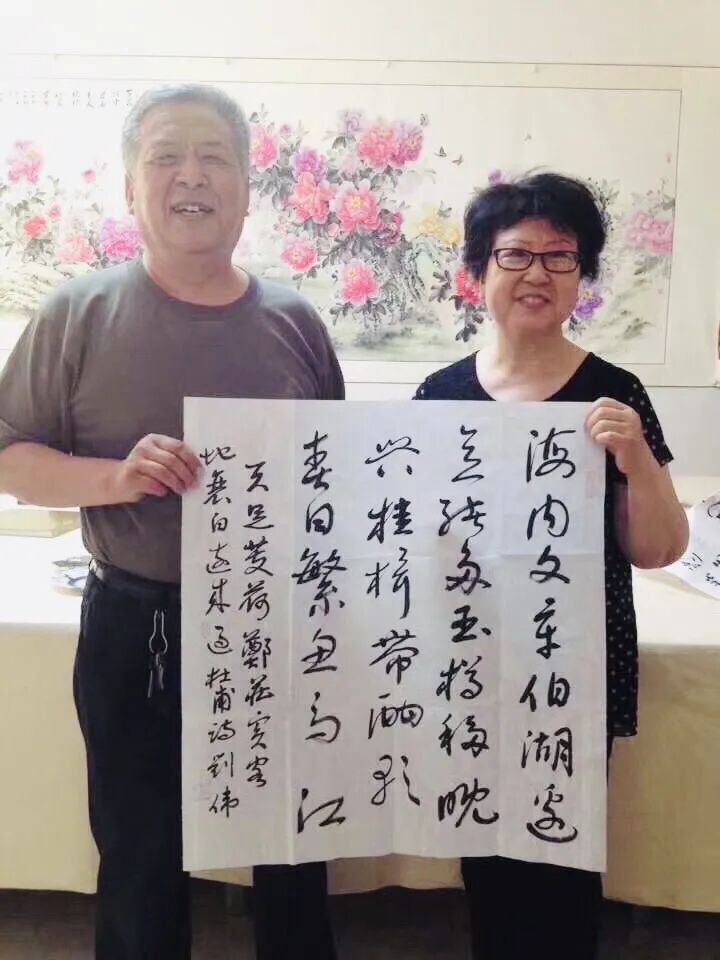 海内文章伯湖边
意绪多玉樽移晚
兴桂楫带酣歌
春日繁鱼鸟江
天足芰荷鄭莊宾客
地衰白远来过杜甫诗劉伟